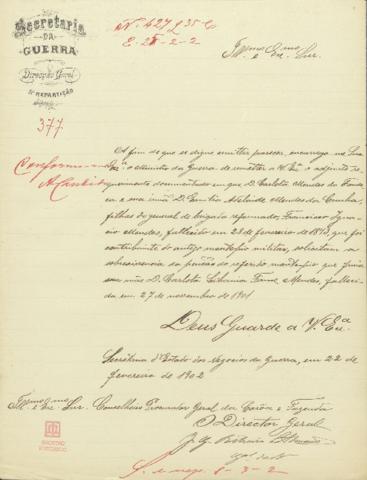 Secretaria
DA
GUERRA
Direcção Geral
5ª REPARTIÇÃO
Nº 427 L 35-C
E. 25-2-2
Illmo e Exmo Snr.
377
A fim de que se digne emittir parecer, encarrega-me Sua
Exª o Ministro da Guerra de remetter a V. Exª o adjunto re-
querimento documentado em que D. Carlota Mendes da
e sua irmã D. Emilia Adelaide Mendes da Cunha,
filhas do general de brigada reformado, Francisco Ignacio
Mendes, fallecido em 28 de fevereiro de que foi
contribuinte do antigo montepio militar, solicitam a
sobrevivencia da pensão do referido montepio que
sua mãe D. Carlota Mendes, falleci-
da em 27 de novembro de 1901
Deus Guarde a V. Exª
Secretaria d'Estado dos Negocios da Guerra, em 22 de
fevereiro de 1902
Illmo e Exmo Snr. Conselheiro Procurador Geral da Corôa e Fazenda
O Director Geral
8-3-2